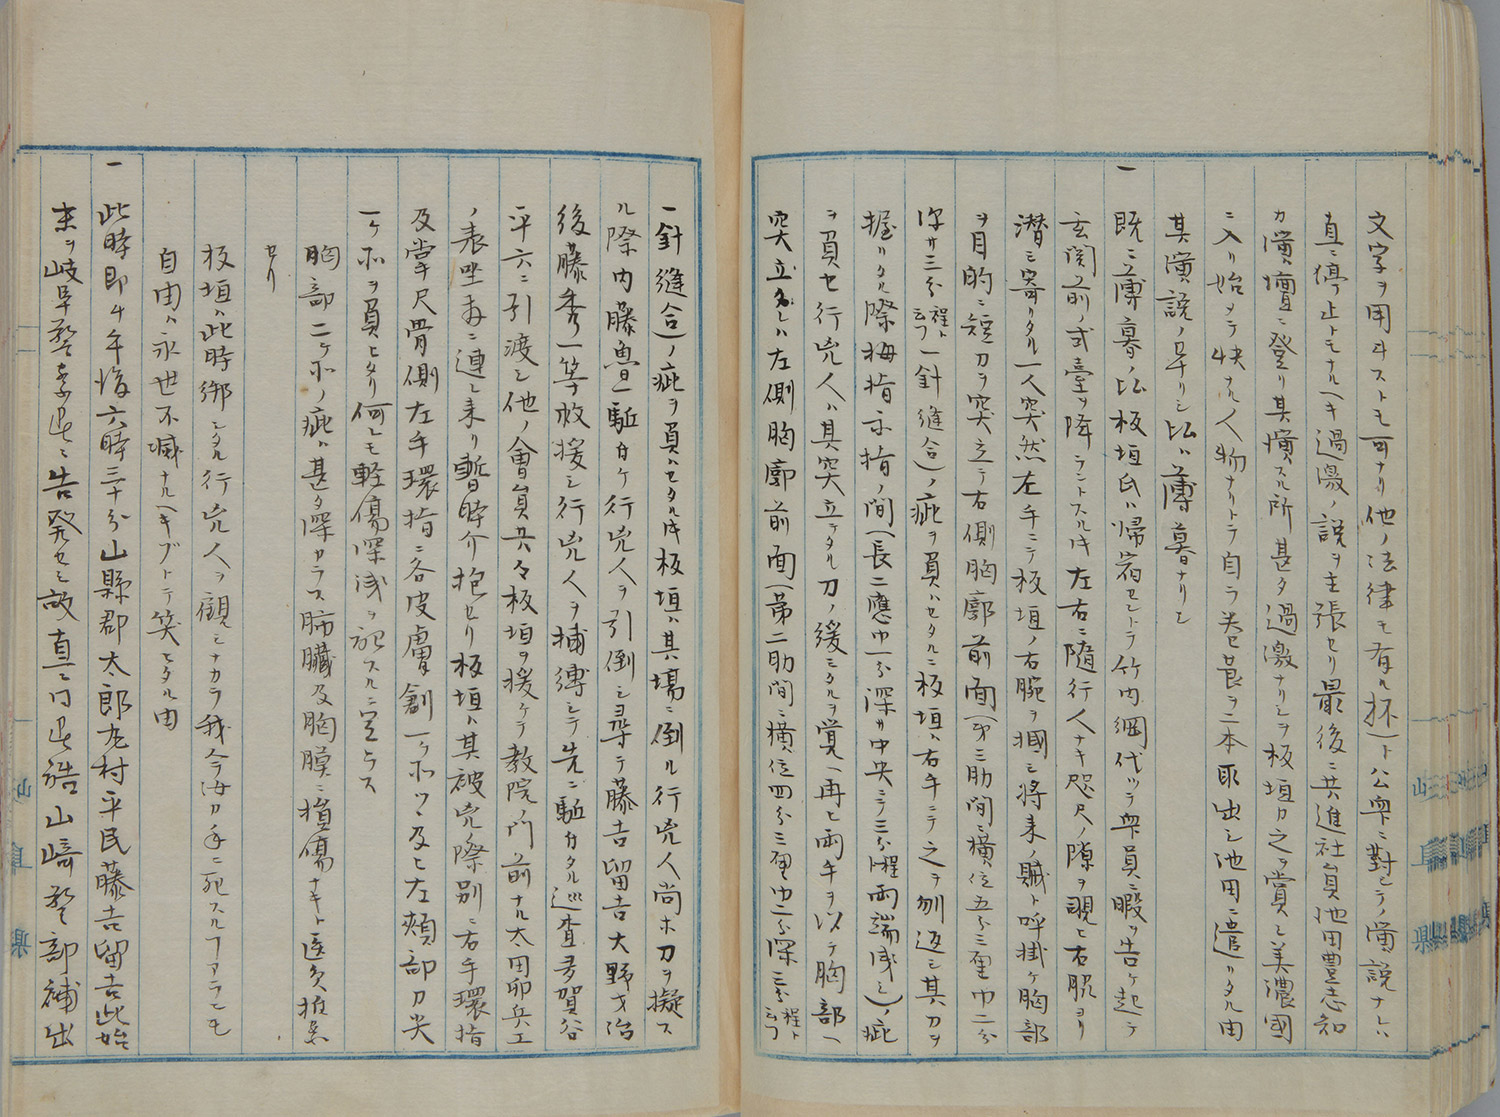 文字ヲ用ヰストモ可ナリ他ノ法律モ有ル抔)ト公衆ニ對シテノ演説ナレハ
直ニ停止トモナルヘキ過激ノ説ヲ主張セリ最後ニ共進社員池田豊志知
カ演壇ニ登リ其演スル所甚タ過激ナリシヲ板垣カ之ヲ賞シ美濃國
ニ入リ始メテ快ナル人物ナリトテ自ラ巻莨ヲ二本取出シ池田ニ遣リタル由
其演説ノ卒リシ比ハ薄暮ナリシ
一
既ニ薄暮ノ比板垣氏ハ帰宿セントテ竹内綱代ッテ衆員ニ暇ヲ告ケ起テ
玄関前ノ式臺ヲ降ラントスル片左右ニ隨行人ナキ咫尺ノ隙ヲ覗ヒ右脇ヨリ
潜ミ寄リタル一人突然左手ニテ板垣ノ右腕ヲ摑ミ将来ノ賊ト呼掛ケ胸部
ヲ目的ニ短刀ヲ突立テ右側胸廓前面(第三肋間ニ横位五分三厘巾二分
深サ三分程ト云フ一針縫合)ノ疵ヲ負ハセタルニ板垣ハ右手ニテ之ヲ刎返シ其刀ヲ
握リタル際拇指示指ノ間(長二應巾一分深サ中央ニテ三分程両端浅シ)ノ疵
ヲ負セ行兇人ハ其突立テタル刀ノ緩ミタルヲ覚ヘ再ヒ両手ヲ以テ胸部ヘ
突立タレハ左側胸廓前面(第二肋間ニ横位四分三厘巾二分深三分程ト云フ
一針縫合)ノ疵ヲ負ハセタル片板垣ハ其場ニ倒ル行兇人尚ホ刀ヲ擬ス
ル際内藤魯一駈付ケ行兇人ヲ引倒シ尋テ藤吉留吉大野才治
後藤秀一等救援シ行兇人ヲ捕縛シテ先ニ駈付タル巡査多賀谷
平六ニ引渡シ他ノ會員共々板垣ヲ援ケテ教院門前ナル太田卯兵エ
ノ表坐舗ニ連レ来リ暫時介抱セリ板垣ハ其被兇際別ニ右手環指
及掌尺骨側左手環指ニ各皮膚創一ケ所ツヽ及ヒ左頬部刀尖
一ケ所ヲ負ヒタリ何レモ軽傷深浅ヲ記スルニ足ラス
胸部二ケ所ノ疵ハ甚タ深カラス肺臓及胸膜ニ損傷ナキト医員推条
セリ
板垣ハ此時縛シタル行兇人ヲ觀シナカラ我今汝カ手ニ死スルヿアラントモ
自由ハ永世不滅ナルヘキゾトテ笑ヒタル由
一
此時即午後六時三十分山縣郡太郎丸村平民藤吉留吉此始
末ヲ岐阜警察署ニ告発セシ故直ニ同署詰山﨑警部補出